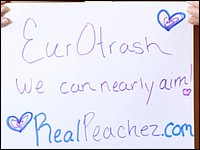 EurOtrash
We can nearly aim!
RealPeachez.com